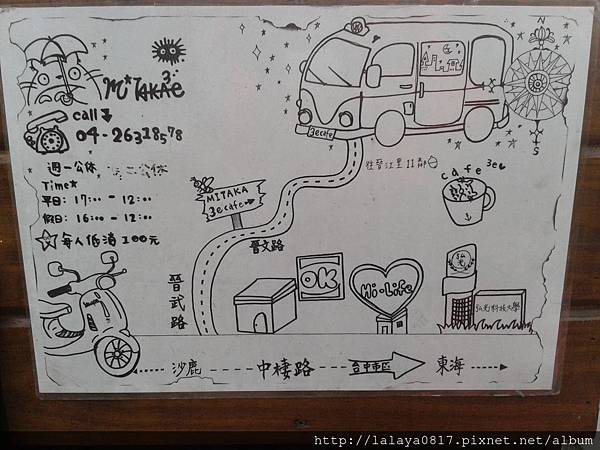 MiTAKA 3e
call
04-26318578
週一公休
Time
平日: 17:00 - 12:00
假日: 16:00 - 12:00
每人低消100元
3ecafe
N
S
cafe 3e
MITAKA
3ecafe
晉文路
晉武路
OK
Hi-Life
弘光
弘光科技大學
沙鹿
中棲路
台中市區
東海
http://lalaya0817.pixnet.net/album